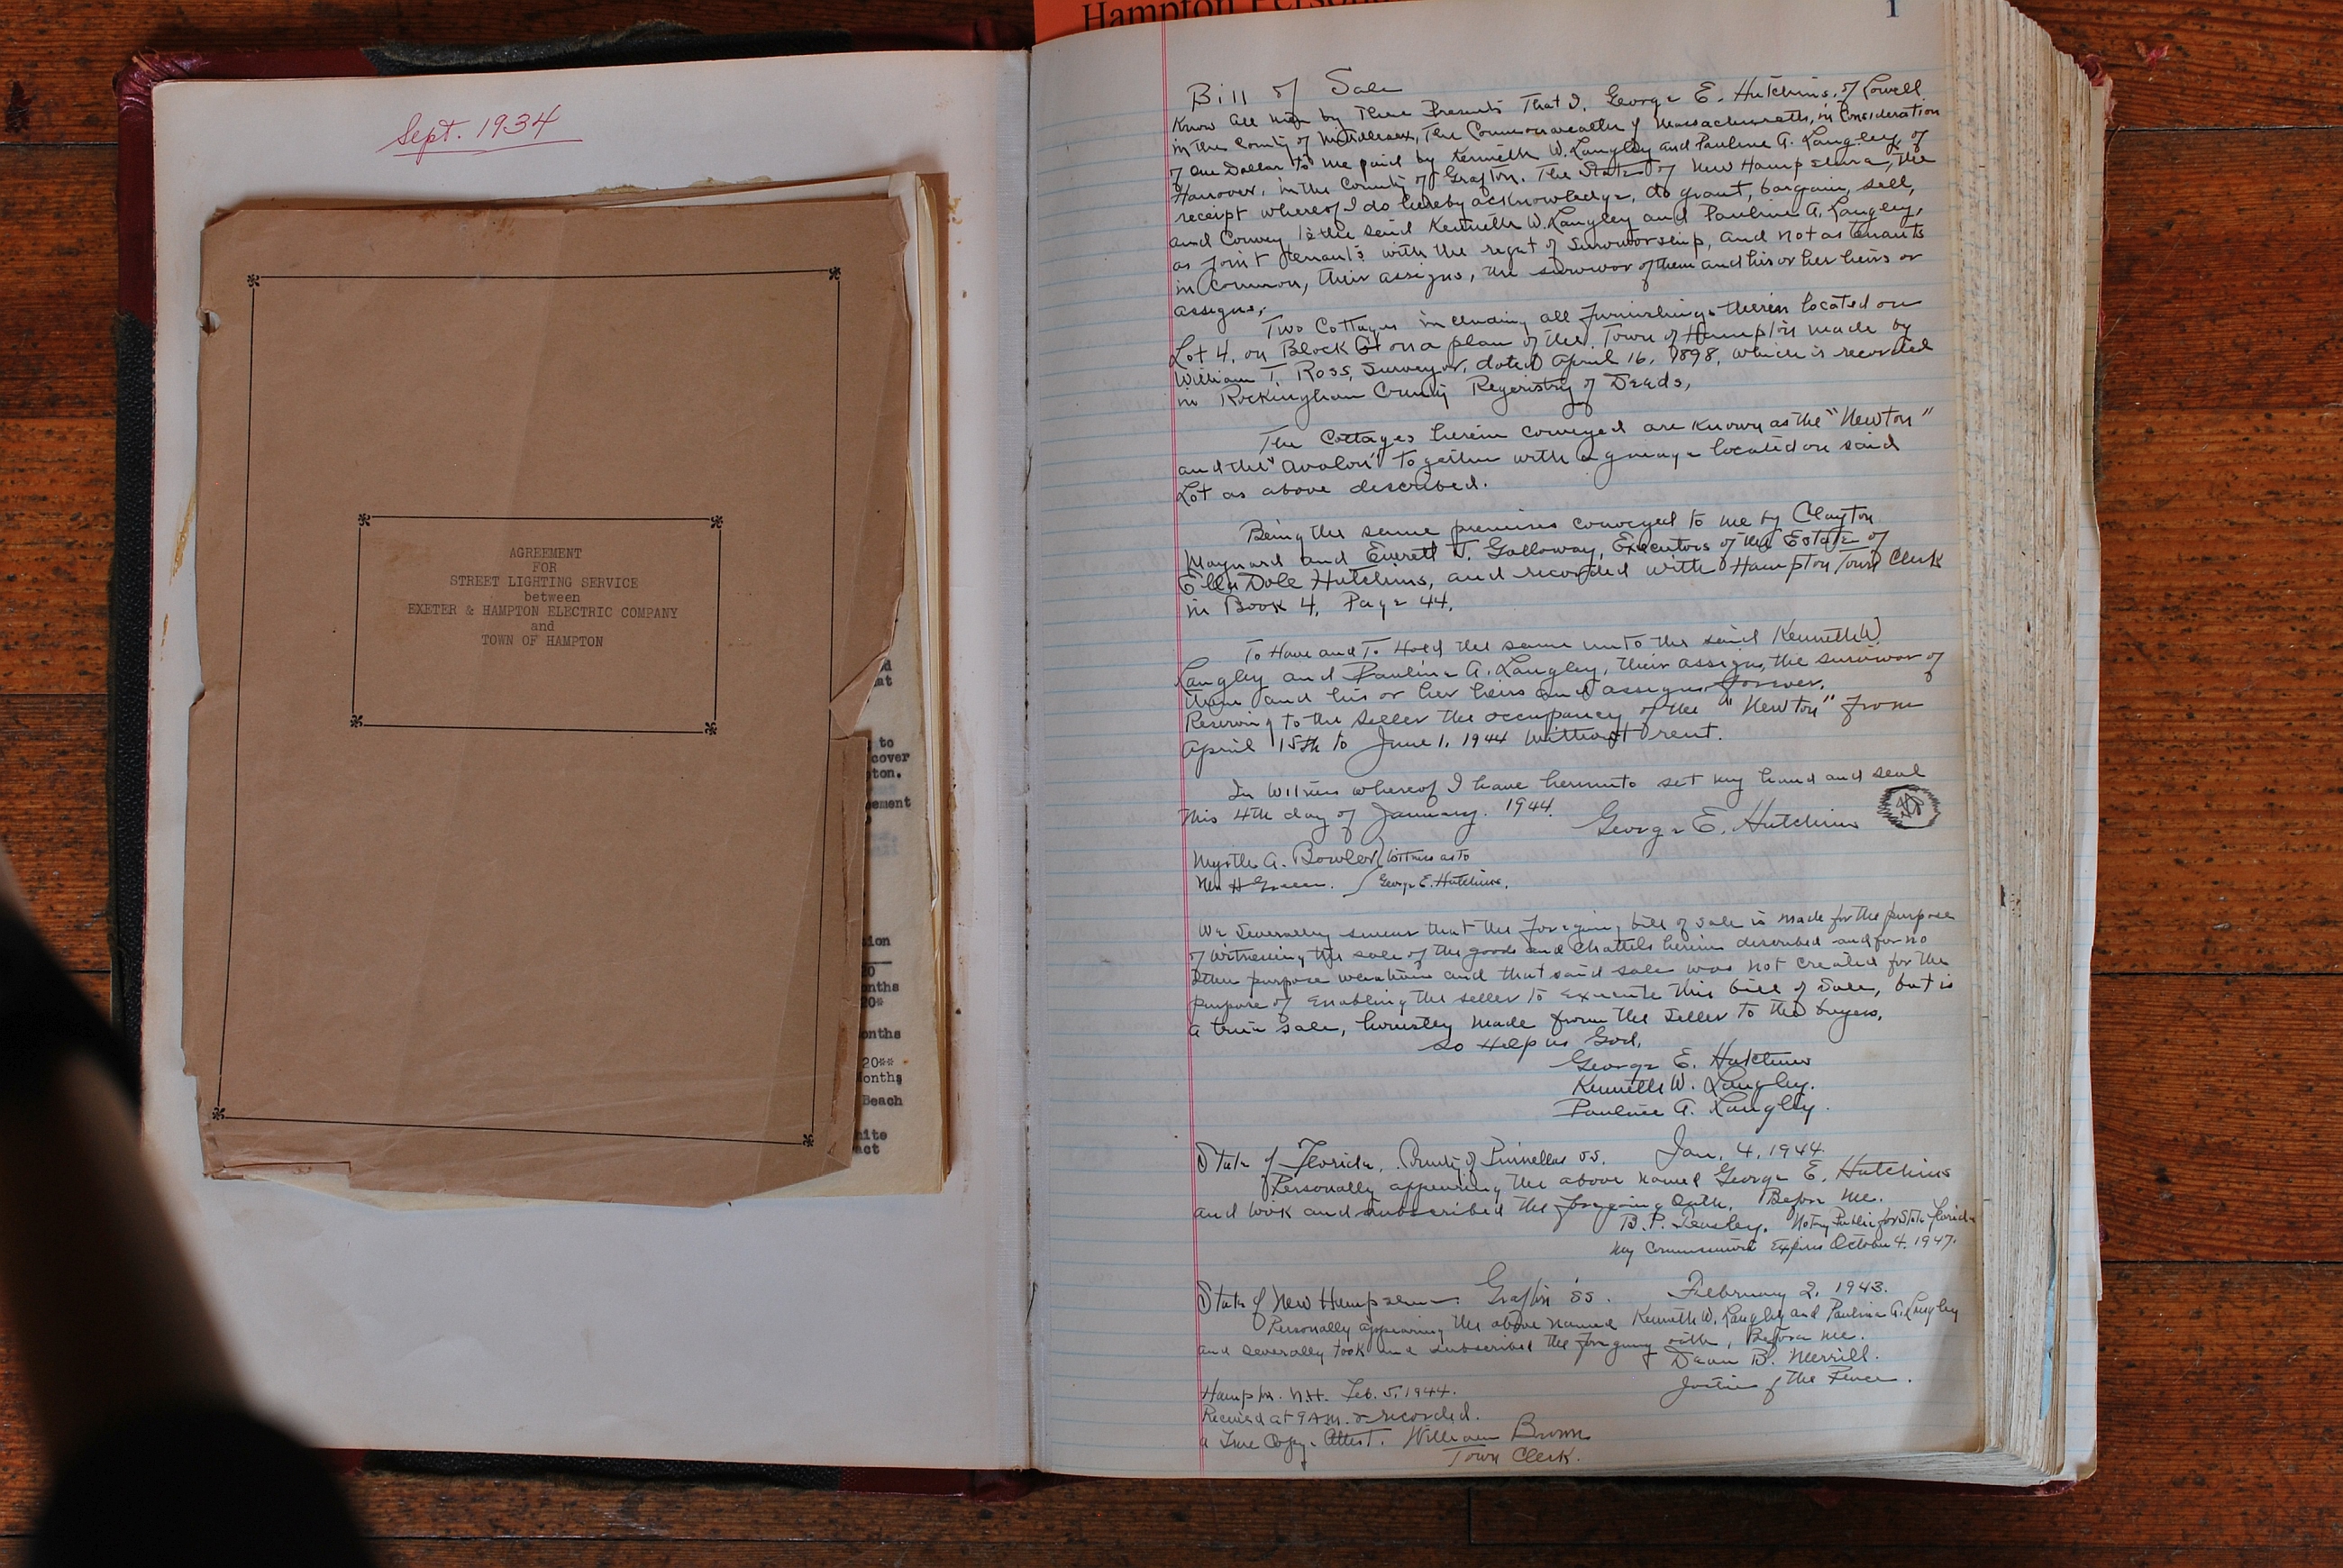 Sept. 1934
AGREEMENT
FOR
STREET LIGHTING SERVICE
between
EXETER & HAMPTON ELECTRIC COMPANY
and
TOWN OF HAMPTON
to
cover
ton.
eement
sion
20
onths
20*
onths
20**
onths
Beach
hite
act
Hampton Person
1
Bill of Sale
Know all men by These Presents That I, George E. Hutchins, of Lowell
in the County of Middlesex, The Commonwealth of Massachusetts, in Consideration
of One Dollar to me paid by Kenneth W. Langley and Pauline A. Langley, of
Hanover, in the County of Grafton. The State of New Hampshire, the
receipt whereof I do hereby acknowledge, do grant, bargain, sell,
and Convey, to the said Kenneth W. Langley and Pauline A. Langley,
as joint tenants with the reget of survivorship, and not as tenants
in common, their assigns, the survivor of them and his or her heirs or
assigns,
Two Cottages including all furnishings therein located on
Lot 4, on Block G on a plan of the Town of Hampton made by
William T. Ross, Surveyor, dated April 16, 1898, which is recorded
in Rockingham County Regeristry of Deeds,
The Cottages herein conveyed are known as the "Newton"
and the "Avalon" together with a garage located on said
Lot as above described.
Being the same premises conveyed to me by Clayton
Maynard and Everett J. Galloway, Executors of the Estate of
Ella Dole Hutchins, and recorded with Hampton Town Clerk
in Book 4, Page 44.
To Have and To Hold the same unto the said Kenneth W.
Langley and Pauline A. Langley, their assigns, the survivor of
them and his or her heirs and assigns forever.
Reserving to the seller the occupancy of the "Newton" from
April 15th to June 1, 1944 without rent.
In Witness whereof I have hereunto set my hand and seal
this 4th day of January. 1944.
George E. Hutchins
Myrtle A. Bowler } Witness as to
H Green. George E. Hutchins.
We Severally swear that the foregoing bill of sale is made for the purpose
of witnessing the sale of the goods and Chattels herein described and for no
other purpose whatever and that said sale was not created for the
purpose of enabling the seller to execute this bill of Sale, but is
a true sale, honestly made from the Seller to the buyers,
So Help us God,
George E. Hutchins
Kenneth W. Langley.
Pauline A. Langley.
State of Florida, County of Pinnellas ss. Jan. 4, 1944.
Personally appearing the above named George E. Hutchins
and took and subscribed the foregoing Oath, Before me.
B. P. Notary Public for State Florida
My Commission Expires October 4, 1947.
State of New Hampshire Grafton SS. February 2, 1943.
Personally appearing the above named Kenneth W. Langley and Pauline A. Langley
and severally took and subscribed the foregoing oath, Before me.
Dean B. Merrill.
Justice of the Peace.
Hampton. N.H. Feb. 5, 1944.
Received at 9 A.M. & recorded.
a True Copy. Attest. William Brown
Town Clerk.